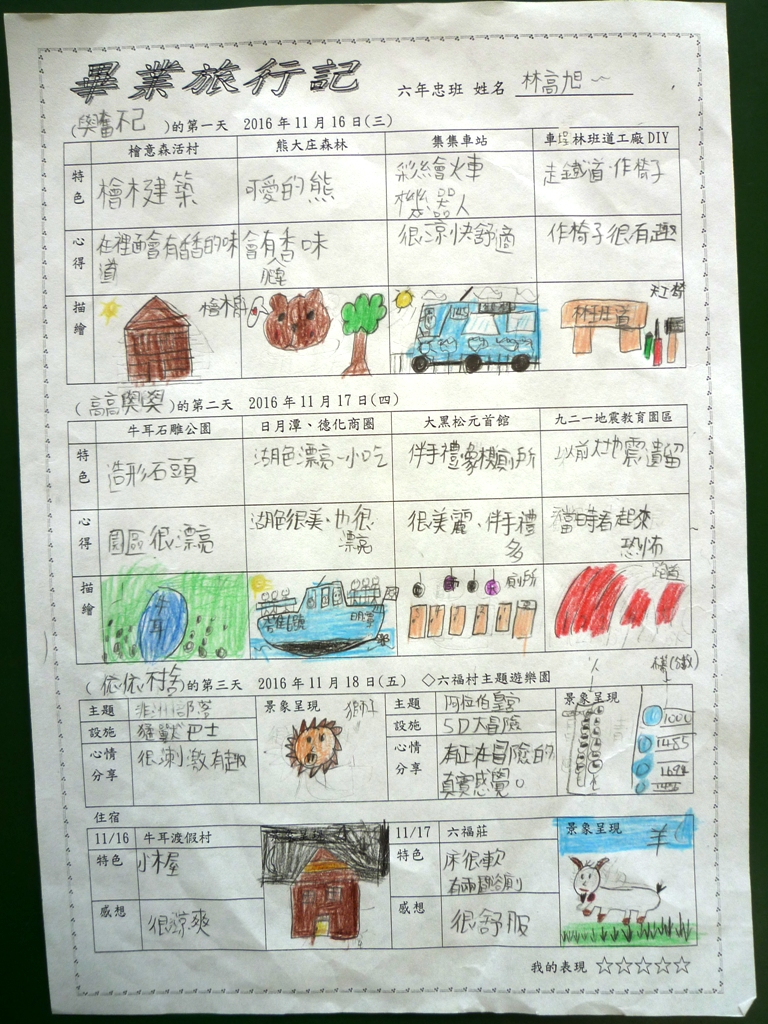 畢業旅行記
六年忠班 姓名 林高旭~
(興奮不已)的第一天 2016年11月16日(三)
檜意森活村 熊大庄森林 集集車站 車埕林班道工廠DIY
特色 檜木建築 可愛的熊 彩繪火車 機器人 走鐵道、作椅子
心得 在裡面會有香香的味道 會有香味 很涼快舒適 作椅子很有趣
描繪 林班道
(高高興興)的第二天 2016年11月17日(四)
牛耳石雕公園 日月潭、德化商圈 大黑松元首館 九二一地震教育園區
特色 造形石頭 湖色漂亮、小吃 伴手禮 廁所 以前大地震遺留
心得 園區很漂亮 湖色很美、也很漂亮 很美麗、伴手禮多 當時看起來恐怖
描繪 牛耳 廁所 跑道
(依依不捨)的第三天 2016年11月18日(五) ◇六福村主題遊樂園
主題 非洲部落 景象呈現 獅子 主題 阿拉伯皇宮 景象呈現
設施 猛獸巴士 設施 5D大冒險 1000
心情分享 很刺激有趣 心情分享 有正在冒險的真實感覺。 1485
住宿
11/16 牛耳渡假村 11/17 六福莊 景象呈現 羊
特色 小木屋 特色 床很軟 有兩間廁所
感想 很涼爽 感想 很舒服
我的表現 ☆☆☆☆☆